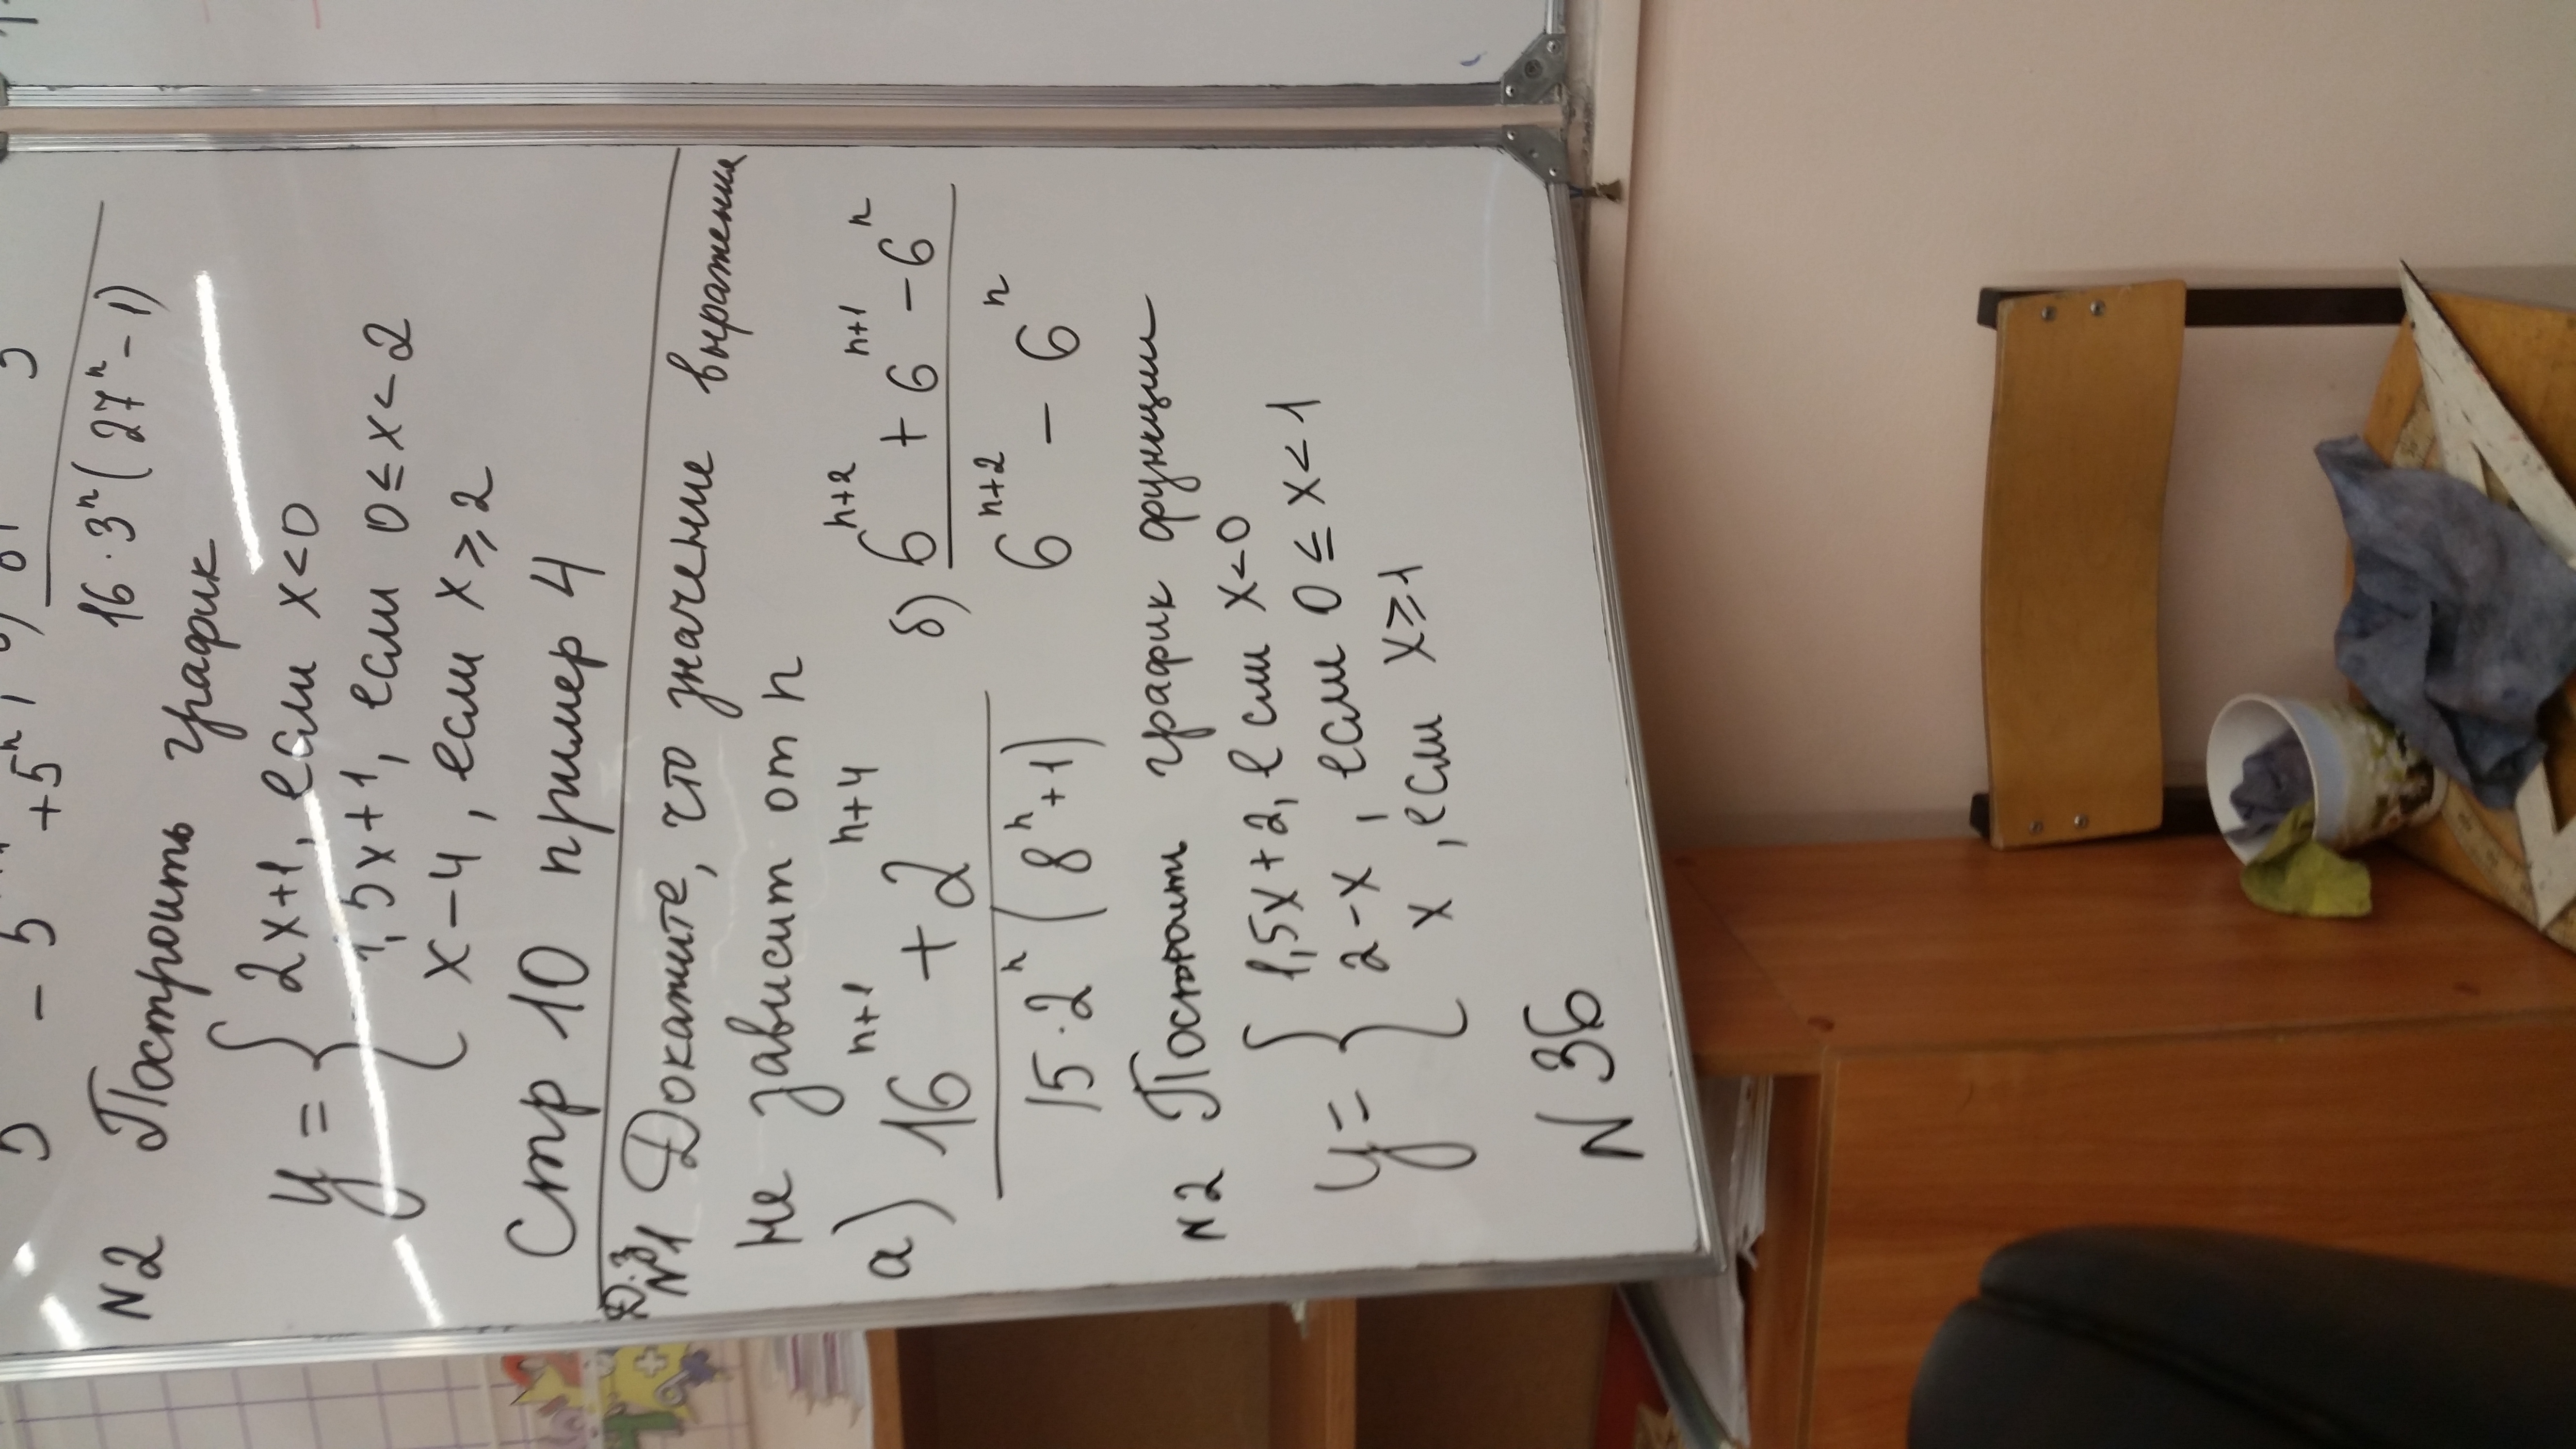 5 - 5 + 5ⁿ
16·3ⁿ(27ⁿ-1)
N2 Построить график
y = { 2x+1, если x<0
1,5x+1, если 0≤x<2
x-4, если x≥2
Стр 10 пример 4
Д.З
№1 Докажите, что значение выражения
не зависит от n
а) 16ⁿ⁺¹ + 2ⁿ⁺⁴ / 15·2ⁿ(8ⁿ+1) б) 6ⁿ⁺² + 6ⁿ⁺¹ - 6ⁿ / 6ⁿ⁺² - 6ⁿ
N2 Построить график функции
y = { 1,5x+2, если x<0
2-x, если 0≤x<1
x, если x≥1
N 36